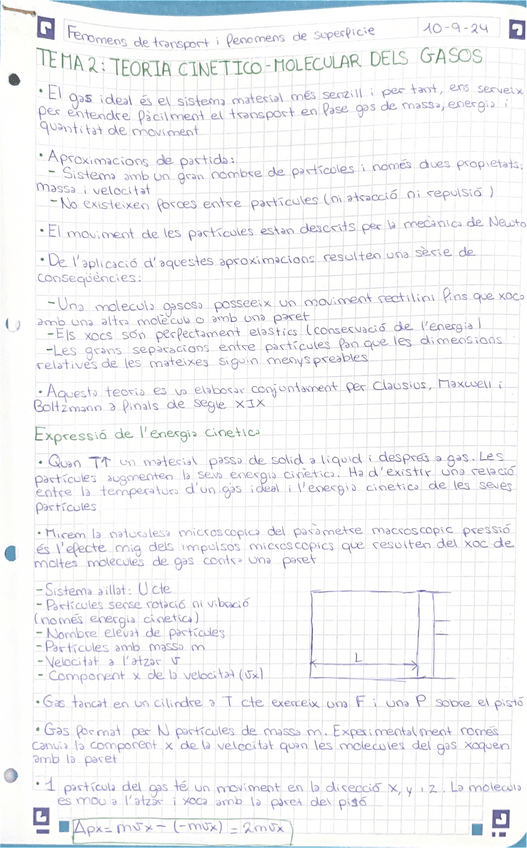 Fenomens de transport i fenomens de superficie
10-9-24
TEMA 2: TEORIA CINETICO-MOLECULAR DELS GASOS
• El gas ideal és el sistema material més senzill i per tant, ens serveix
per entendre fàcilment el transport en fase gas de massa, energia i
quantitat de moviment
• Aproximacions de partida:
- Sistema amb un gran nombre de partícules i només dues propietats:
massa i velocitat
- No existeixen forces entre partícules (ni atracció ni repulsió)
• El moviment de les partícules estan descrits per la mecànica de Newto
• De l'aplicació d'aquestes aproximacions resulten una sèrie de
conseqüències:
- Una molecula gasosa posseeix un moviment rectilini fins que xoca
amb una altra molècula o amb una paret
- Els xocs són perfectament elastics (conservació de l'energia)
- Les grans separacions entre partícules fan que les dimensions
relatives de les mateixes siguin menyspreables
• Aquesta teoria es va elaborar conjuntament per Clausius, Maxwell i
Boltzmann a finals de segle XIX
Expressió de l'energia cinetica
• Quan T↑ un material passa de solid a liquid i després a gas. Les
partícules augmenten la seva energia cinetica. Ha d'existir una relació
entre la temperatura d'un gas ideal i l'energia cinetica de les seves
partícules
• Mirem la naturalesa microscopica del paràmetre macroscopic pressió
és l'efecte mig dels impulsos microscopics que resulten del xoc de
moltes molecules de gas contra una paret
- Sistema aïllat: U cte
- Partícules sense rotació ni vibració
(només energia cinetica)
- Nombre elevat de partícules
- Partícules amb massa m
- Velocitat a l'atzar v
- Component x de la velocitat (vx)
L
• Gas tancat en un cilindre a T cte exerceix una F i una P sobre el pistó
• Gas format per N partícules de massa m. Experimentalment només
canvia la component x de la velocitat quan les molecules del gas xoquen
amb la paret
• 1 partícula del gas té un moviment en la direcció x, y i z. La molecula
es mou a l'atzar i xoca amb la paret del pistó
Δpx = mvx - (-mvx) = 2mvx